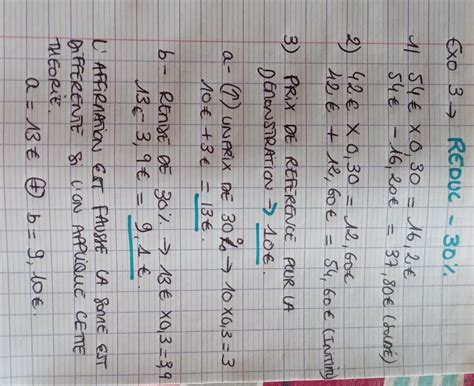 Exo 3 → REDUC - 30%
1) 54€ X 0,30 = 16,2€
54€ - 16,20€ = 37,80€ (soldé)
2) 42€ X 0,30 = 12,60€
42€ + 12,60€ = 54,60€ (initial)
3) PRIX DE REFERENCE POUR LA
DEMONSTRATION → 10€.
a- (↑) UN PRIX DE 30% → 10 X 0,3 = 3
10€ + 3€ = 13€.
b- REMISE DE 30% → 13€ X 0,3 = 3,9
13€ - 3,9€ = 9,1€.
L'AFFIRMATION EST FAUSSE LA SOMME EST
DIFFERENTE SI L'ON APPLIQUE CETTE
THEORIE.
a = 13€ ≠ b = 9,10€.